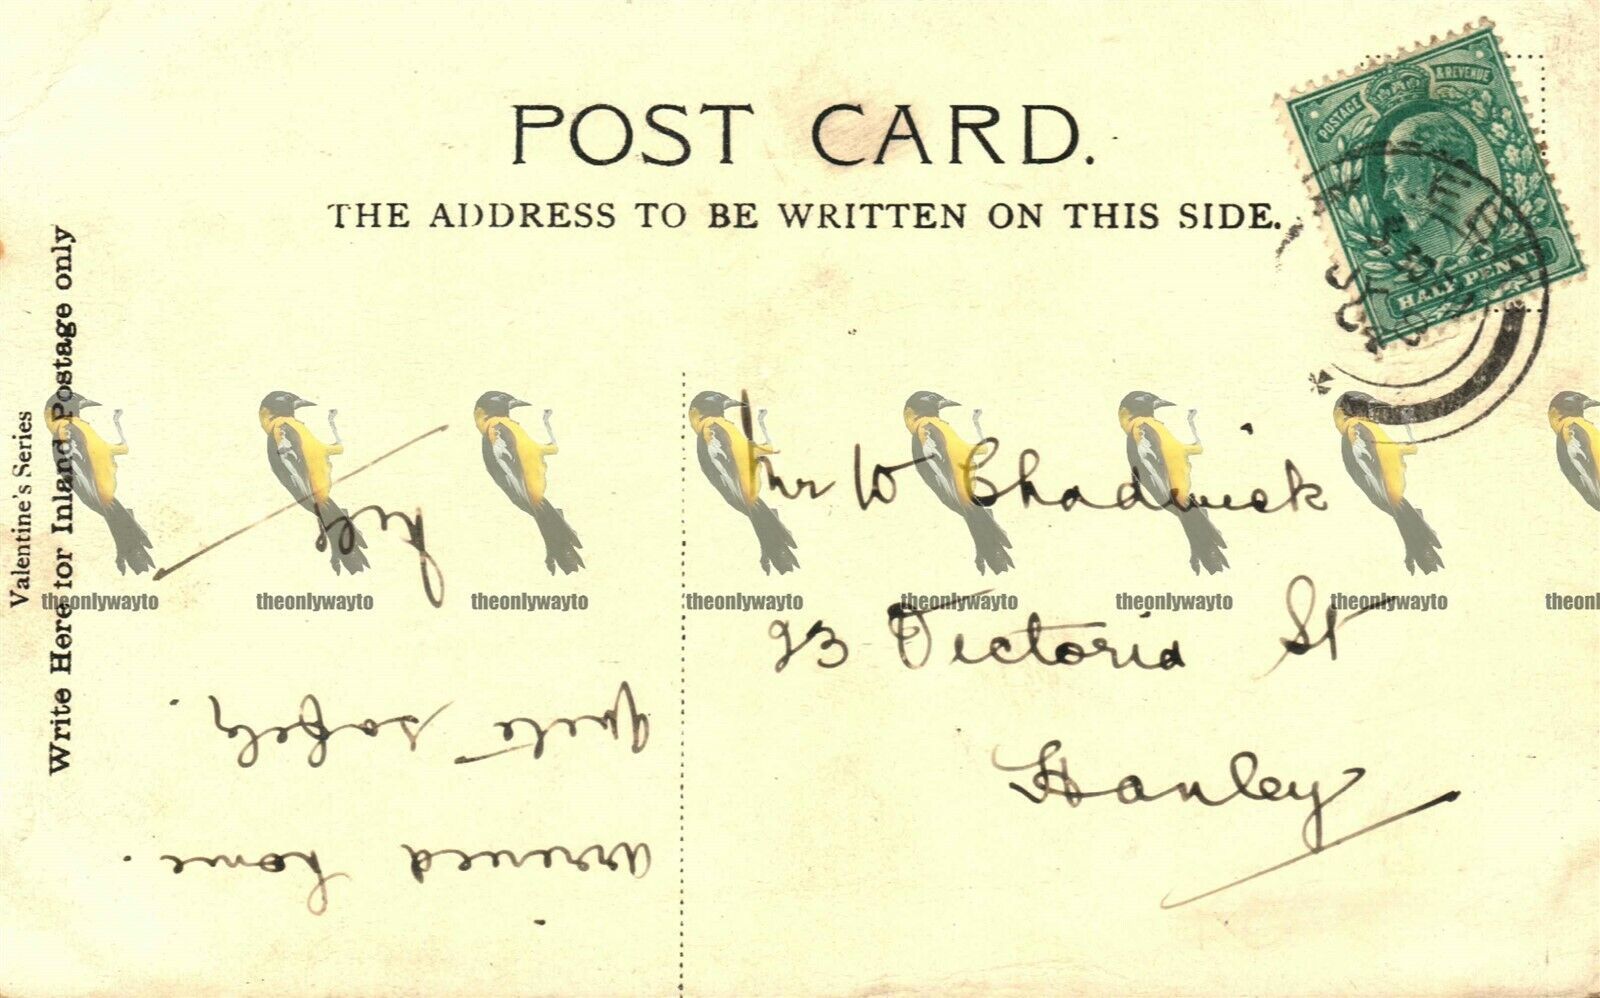 POST CARD.
THE ADDRESS TO BE WRITTEN ON THIS SIDE.
POSTAGE & REVENUE
HALF PENNY
Valentine's Series
Write Here for Inland Postage only
arrived home.
quite safely.
Mr W Chadwick
23 Victoria St
Hanley
theonlywayto theonlywayto theonlywayto theonlywayto theonlywayto theonlywayto theonlywayto theonl